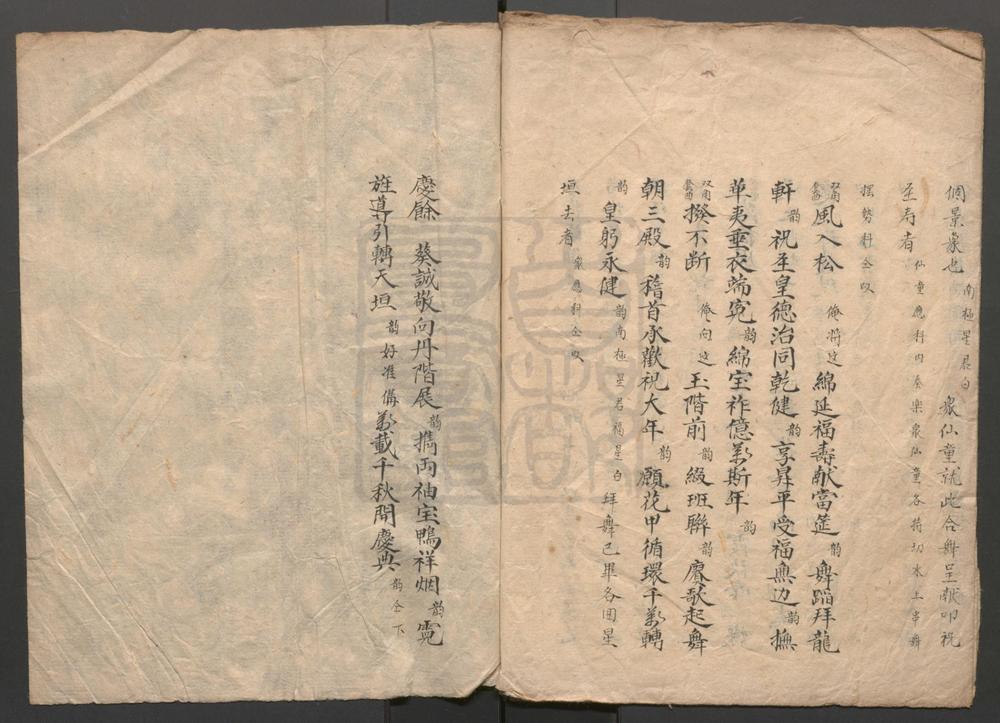 個景象也 南極星君白 衆仙童就此合舞呈献叩祝
圣寿者 仙童應科内奏樂衆仙童各持切末上串舞
擺勢科仝唱
双角套曲 風入松 俺将这 綿延福壽献當筵 韵 舞蹈拜龍
軒 韵 祝圣皇德治同乾健 韵 享昇平受福無边 韵 撫
華夷垂衣端冕 韵 綿宝祚億萬斯年 韵
双角套曲 撥不断 俺向这 玉階前 韵 綴班聯 韵 賡歌起舞
朝三殿 韵 稽首承歡祝大年 韵 願花甲循環千萬轉
韵 皇躬永健 韵 南極星君福星白 拜舞已畢各回星
垣去者 衆應科仝唱
慶餘 葵誠敬向丹階展 韵 携両袖宝鴨祥烟 韵 霓
旌導引轉天垣 韵 好准備萬載千秋開慶典 韵 仝下